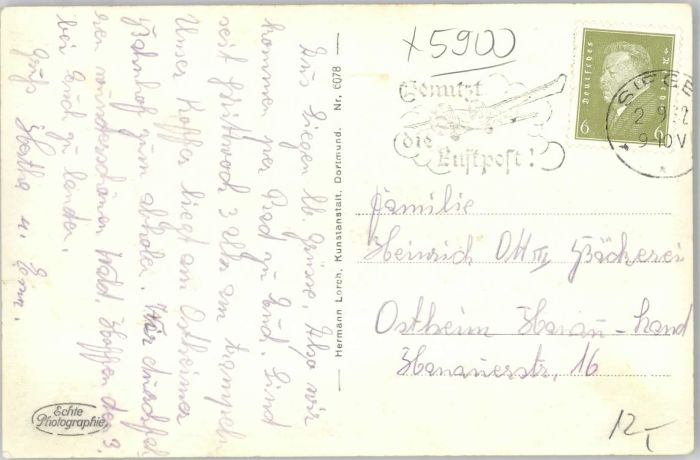 Aus Siegen lb. Grüsse. Also wir
kommen per Rad zu Euch. Sind
seit Mittwoch 3 Uhr am trampeln
Unser Koffer liegt am Ostheimer
Bahnhof zum abholen. Wir
wunderschönen Wald. Hoffen des 3.
bei Euch zu landen.
Gruß Hertha u.
Hermann Lorch, Kunstanstalt, Dortmund. Nr. 6078
Echte
Photographie
+5900
Benutzt
die
Luftpost!
Deutsches Reich
6 6
SIEGE
2 9 32
9-10V
Familie
Heinrich Ott III Bäckerei
Ostheim Hanau-Land
Hanauerstr, 16
12,-